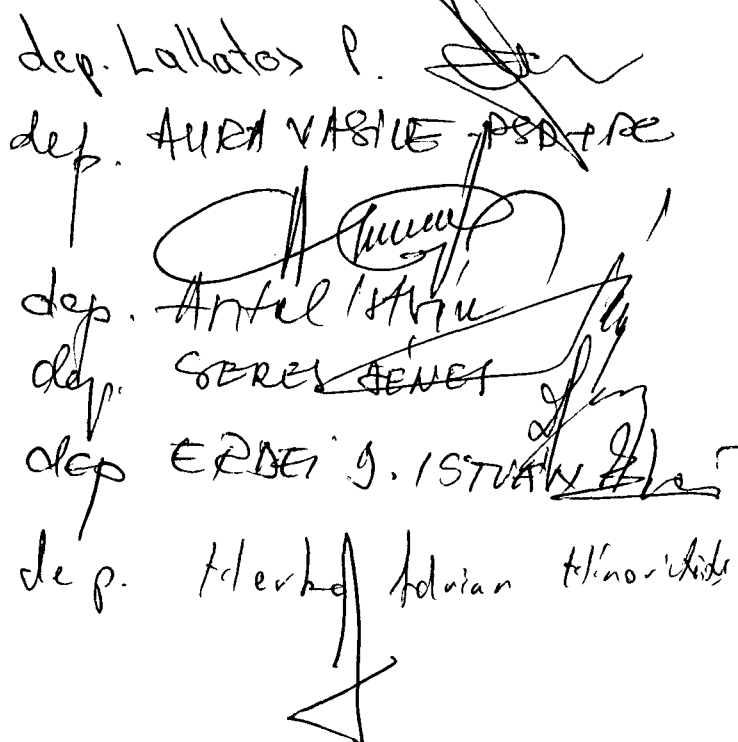 dep. Lallatos P.
dep. AURA VASILE - PSD+PC
dep. Antal István
dep. SERES DÉNES
dep ERDEI D. ISTVÁN
dep. Merka Adrian Minorități